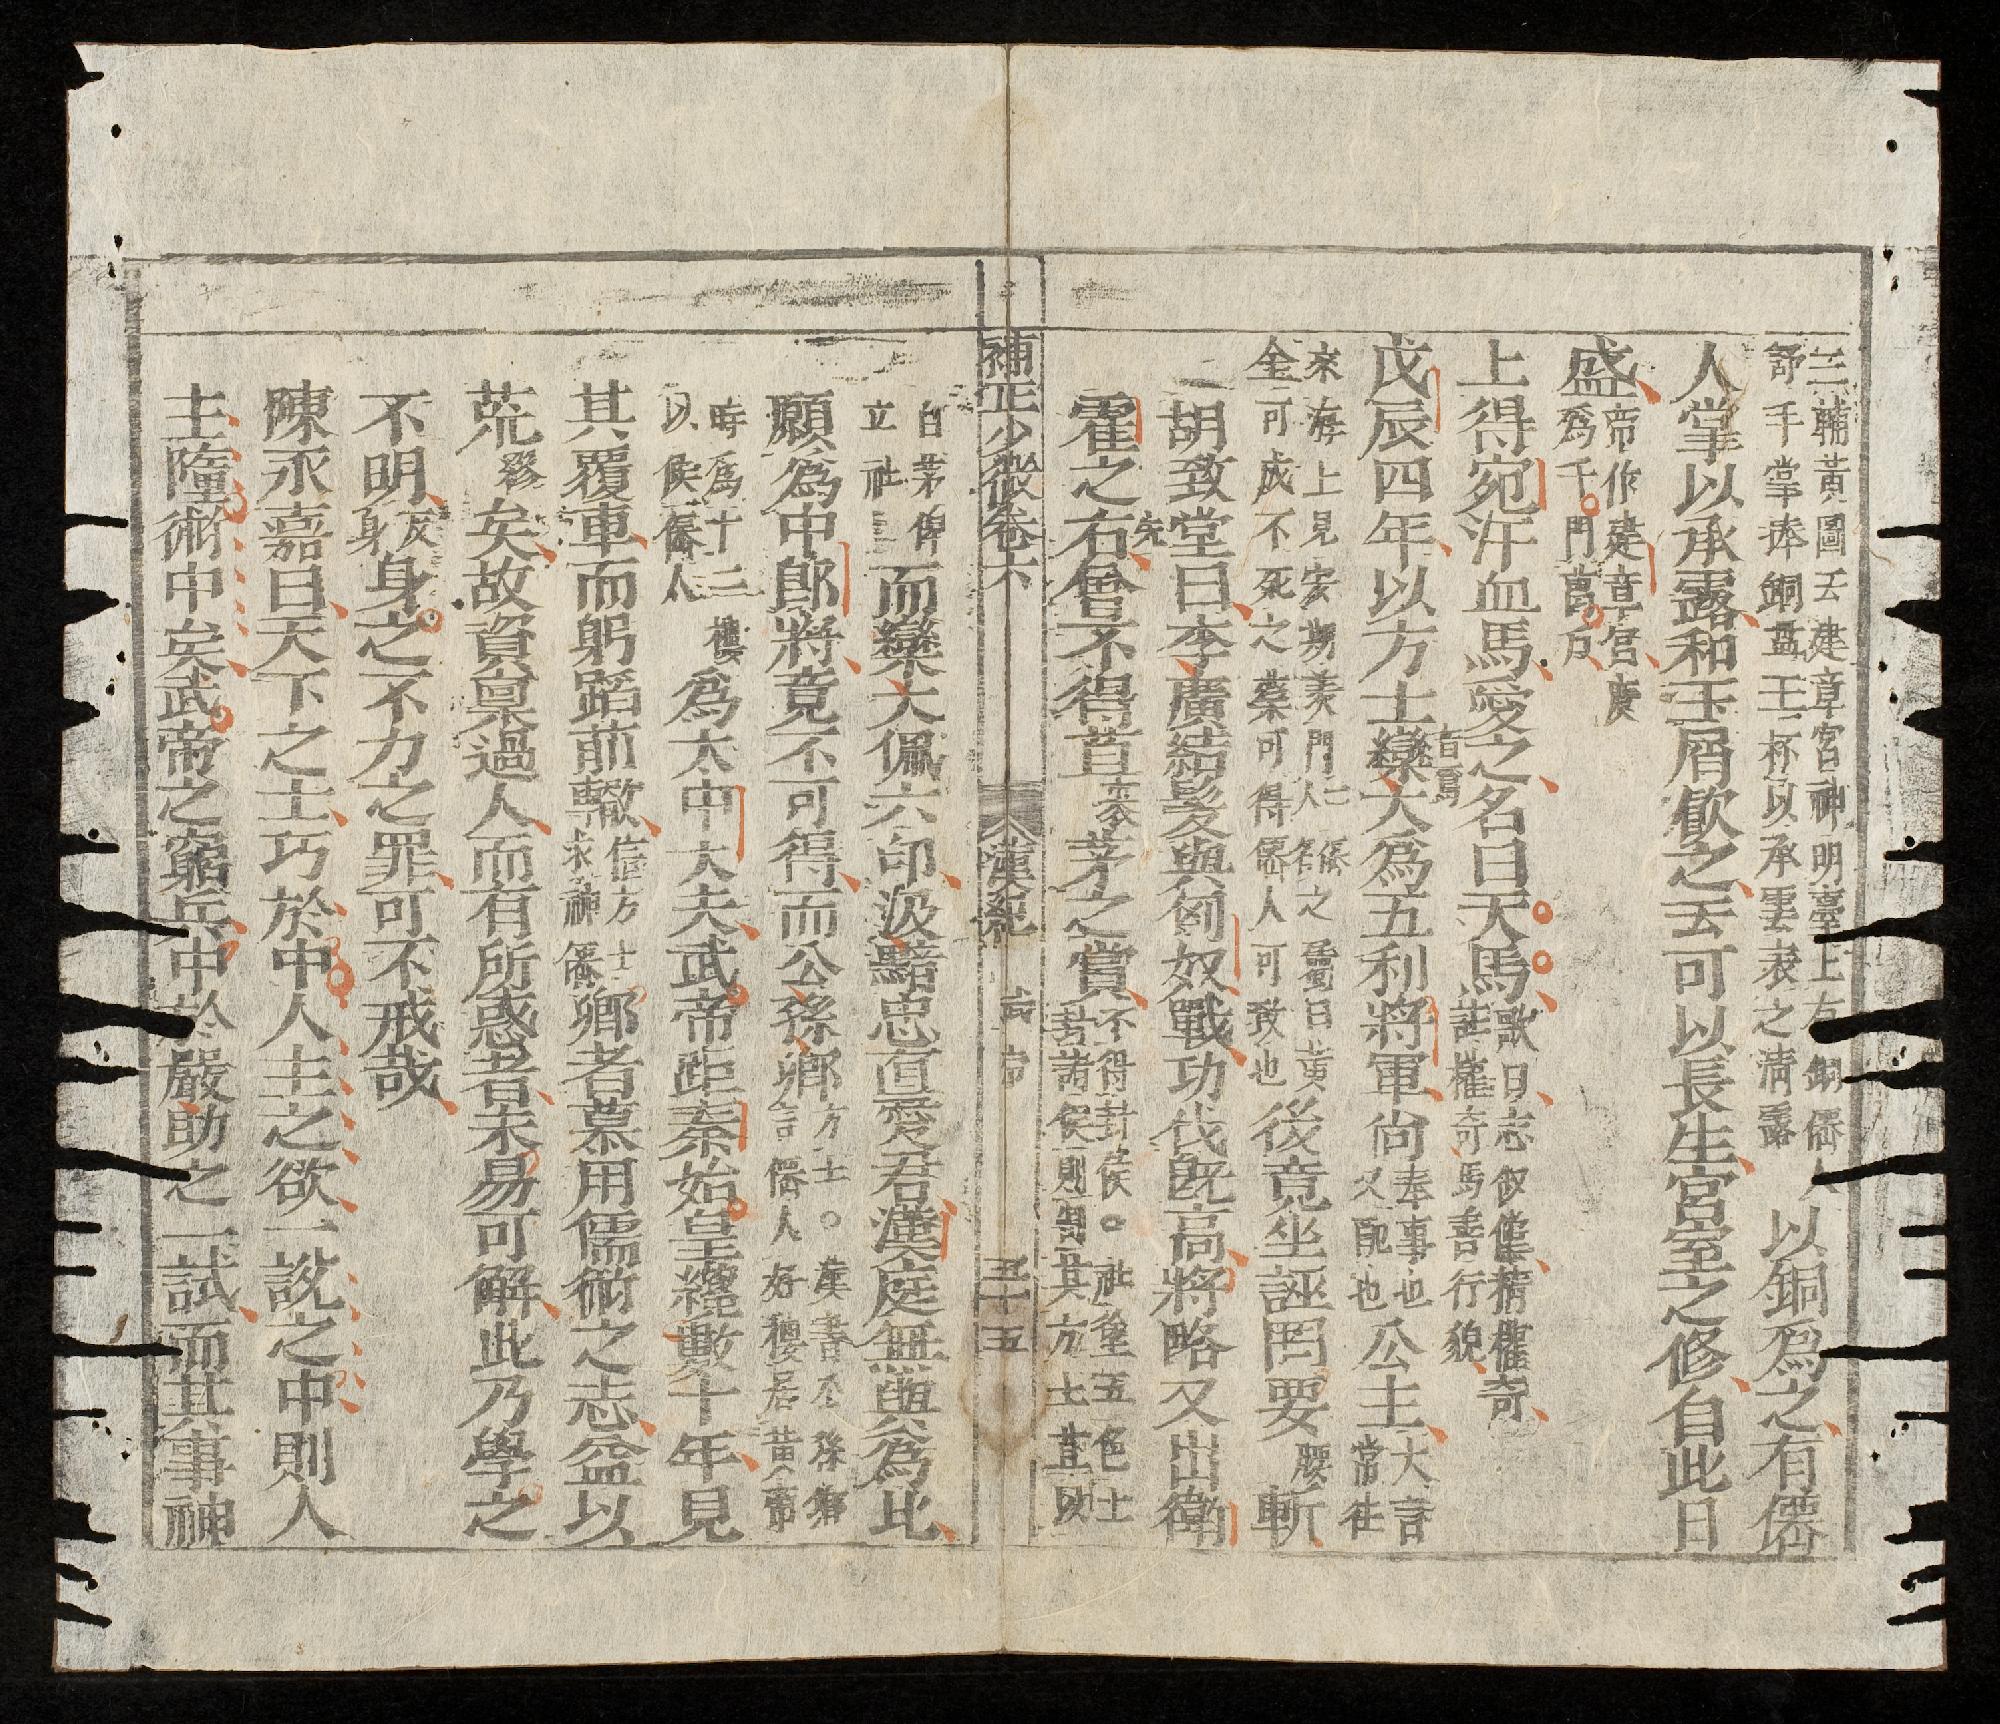 三輔黃圖云建章宮神明臺上有銅僊人
舒手掌捧銅盤玉杯以承雲表之清露
以銅爲之有僊
人掌以承露和玉屑飮之云可以長生宮室之修自此日
盛
帝作建章宮度
爲千門萬戶
上得宛汗血馬愛之名曰天馬
歌曰志俶儻精權奇
註權奇馬善行貌
戊辰四年以方士欒大爲五利將軍尙
奉事也
又配也
公主
大言
常往
來海上見安期羡門
仙人名之屬曰黃
金可成不死之藥可得僊人可致也
後竟坐誣罔要
腰
斬
胡致堂曰李廣結髮與匈奴戰功伐旣高將略又出衛
霍之右
先
曾不得苴
茅之賞
不得封侯○社壇五色土
封諸侯則割其方土苴以
補正少微卷六
漢紀
武帝
三十五
白茅俾
立社
而欒大佩六印汲黯忠直愛君漢庭無踰爲此
願爲中郞將竟不可得而公孫卿
方士○漢書公孫卿
言僊人好樓居黃帝
時爲十二樓
以候僊人
爲太中大夫武帝距秦始皇纔數十年見
其覆車而躬蹈前轍
信方士
求神僊
鄕者慕用儒術之志益以
荒
矣故資禀過人而有所惑者未易可解此乃學之
不明
反
身
身之不力之罪可不戒哉
陳永嘉曰天下之士巧於中人主之欲一說之中則人
主墮術中矣武帝之窮兵中於嚴助之一試而其事神